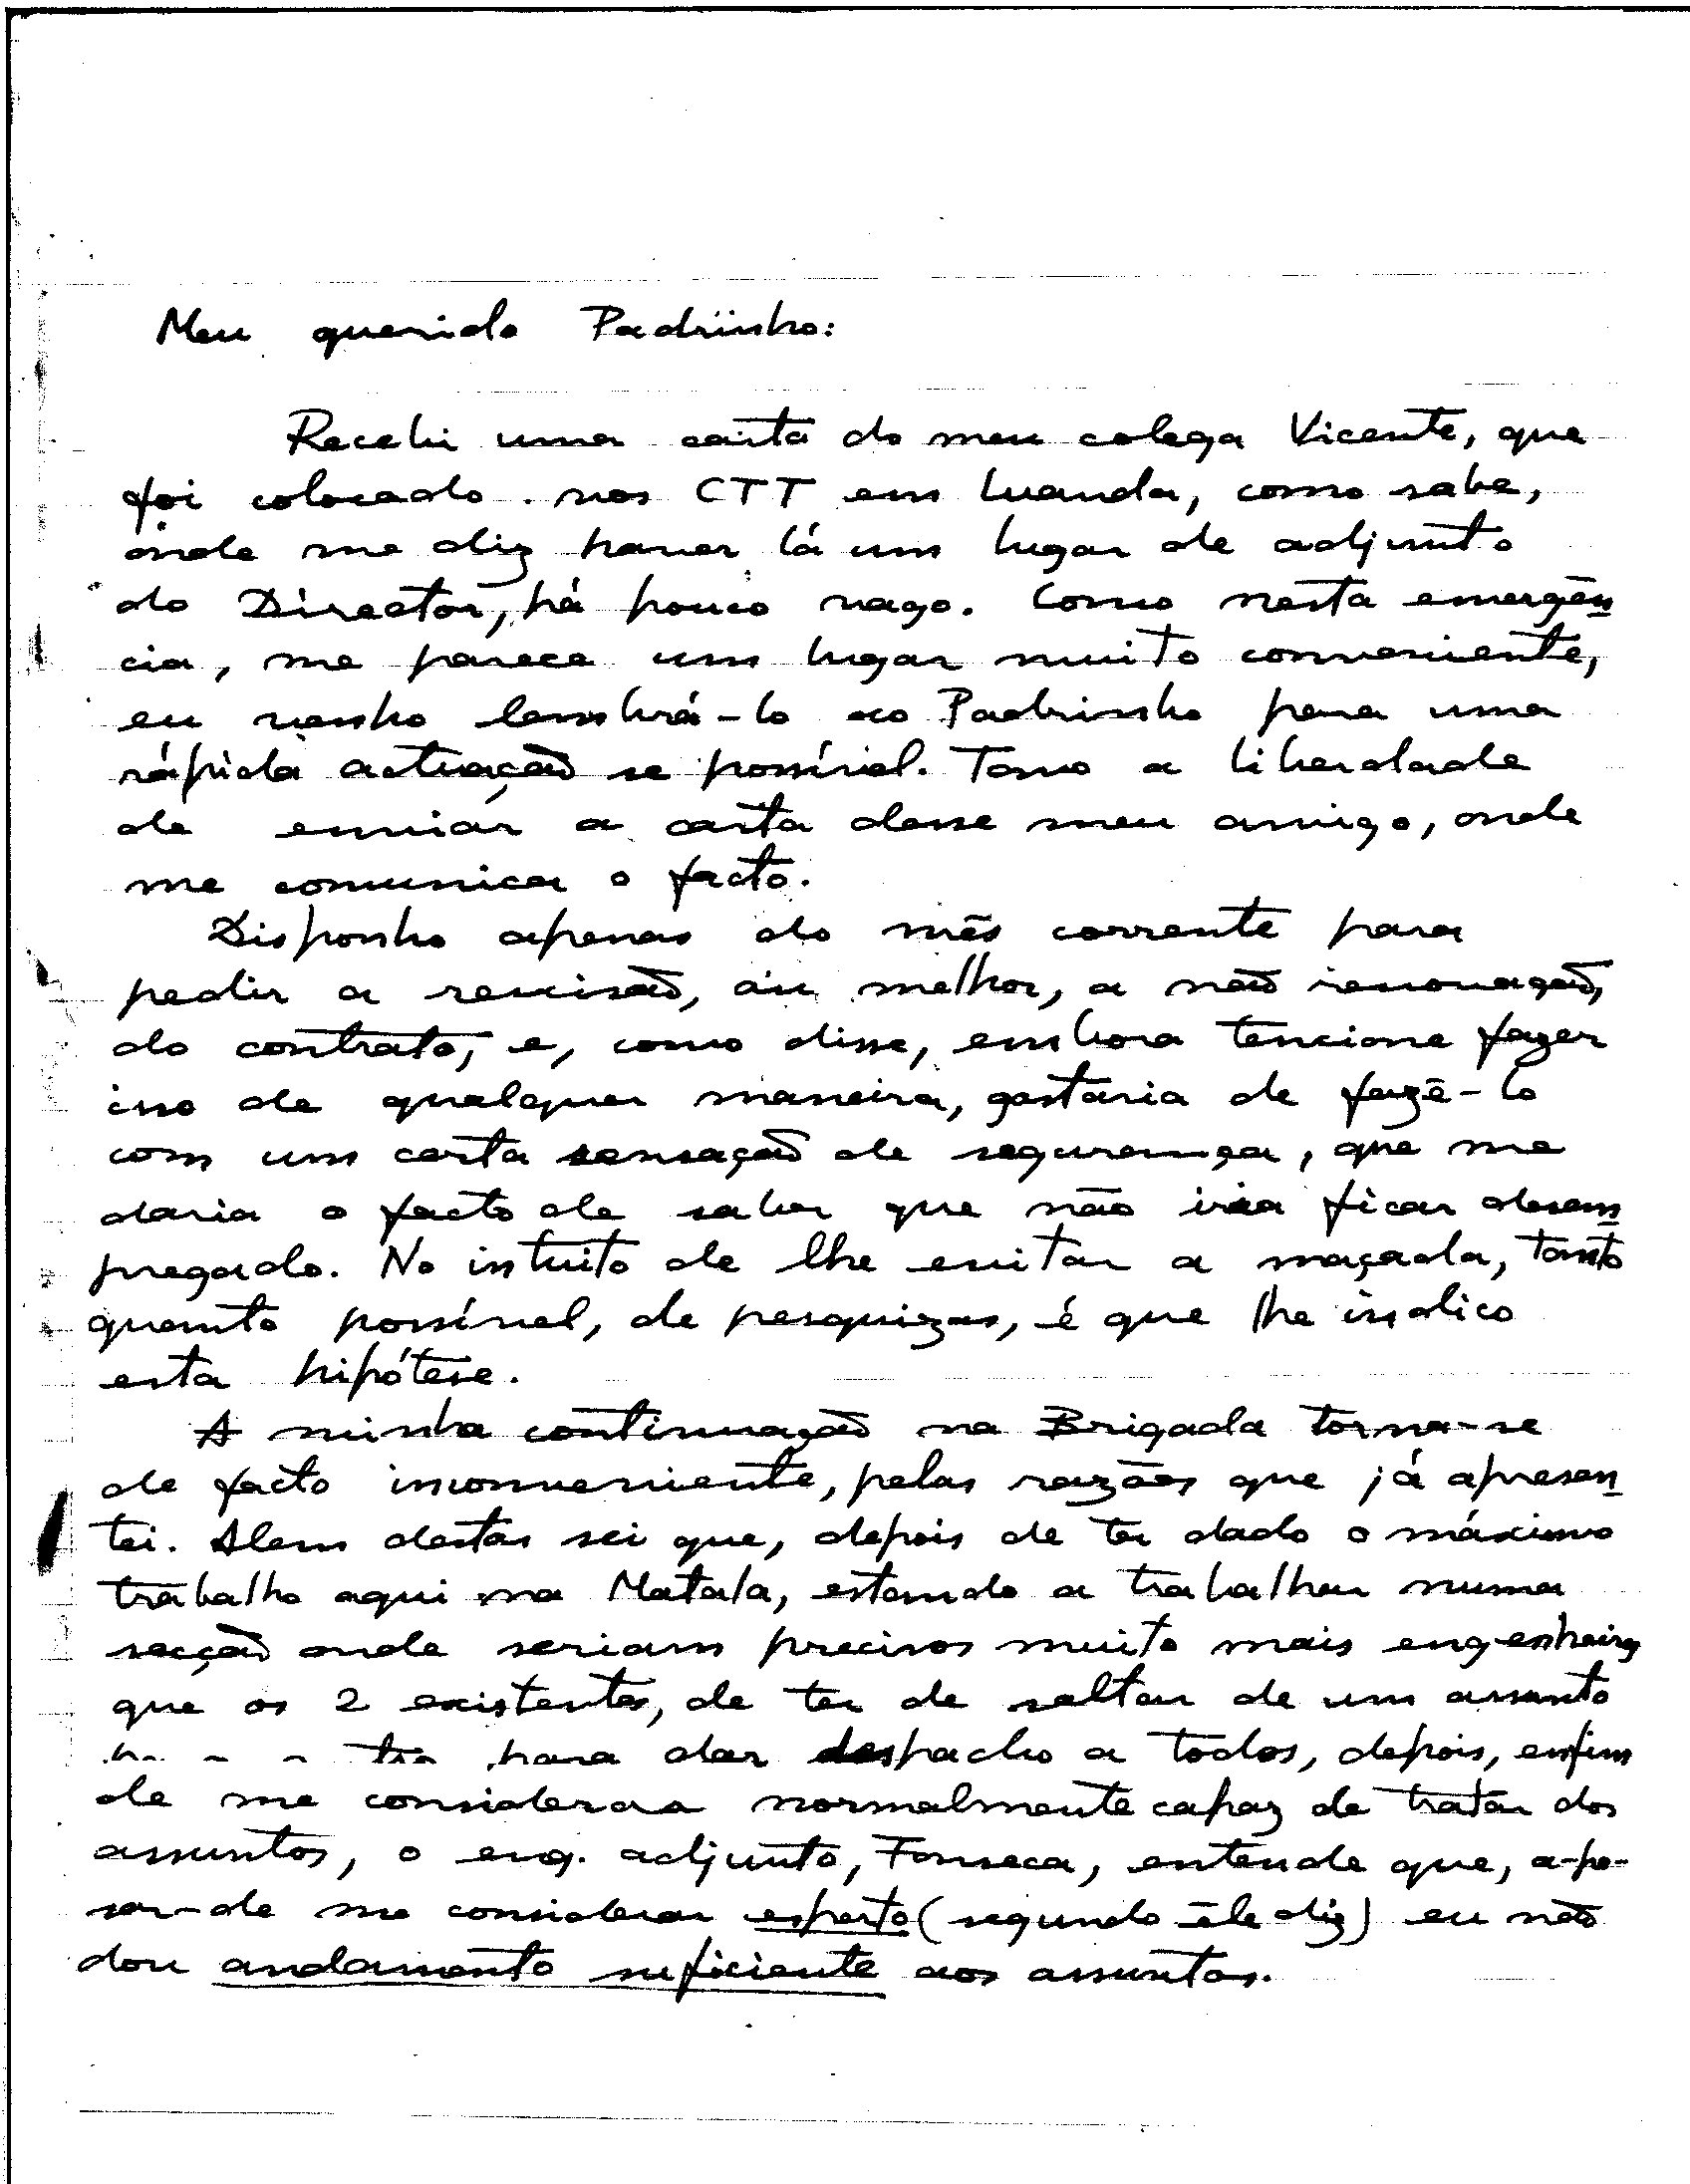 Meu querido Padrinho:
Recebi uma carta do meu colega Vicente, que
foi colocado nos CTT em Luanda, como sabe,
onde me diz haver lá um lugar de adjunto
do Director, há pouco vago. Como nesta emergên
cia, me parece um lugar muito conveniente,
eu venho lembrá-lo ao Padrinho para uma
rápida actuação se possível. Tomo a liberdade
de enviar a carta desse meu amigo, onde
me comunica o facto.
Disponho apenas do mês corrente para
pedir a rescisão, ou melhor, a não renovação,
do contrato, e, como disse, embora tencione fazer
isso de qualquer maneira, gostaria de fazê-lo
com um certa sensação de segurança, que me
daria o facto de saber que não iria ficar desem
pregado. No intuito de lhe evitar a maçada, tanto
quanto possível, de pesquizas, é que lhe indico
esta hipótese.
A minha continuação na Brigada torna-se
de facto inconveniente, pelas razões que já apresen
tei. Alem destas sei que, depois de ter dado o máximo
trabalho aqui na Matala, estando a trabalhar numa
secção onde seriam precisos muito mais engenheiros
que os 2 existentes, de ter de saltar de um assunto
para dar despacho a todos, depois, enfim
de me considerar normalmente capaz de tratar dos
assuntos, o eng. adjunto, Fonseca, entende que, a-pe-
sar-de me considerar esperto (segundo êle diz) eu não
dou andamento suficiente aos assuntos.